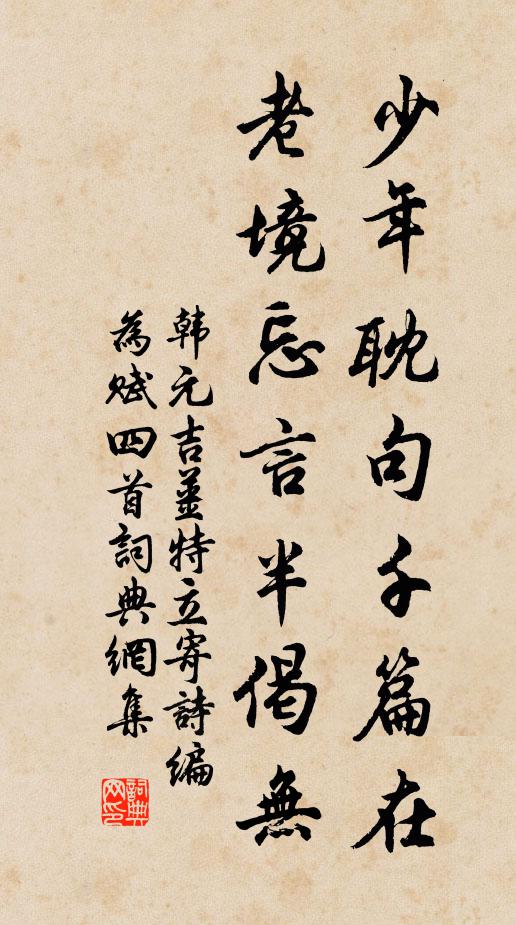 少年耽句千篇在
老境忘言半偈無
韩元吉薑特立寄詩编
為赋四首詞典網集
詞典网印